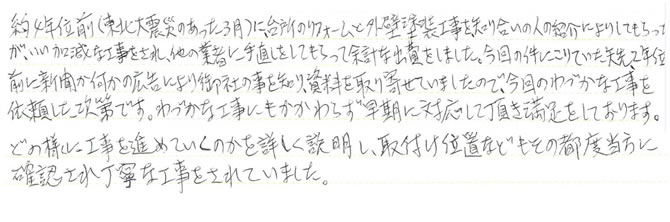 約4年位前(東北大震災のあった3月)に台所のリフォームと外壁塗装工事を知り合いの人の紹介によりしてもらった
が、いい加減な工事をされ、他の業者に手直しをしてもらって余計な出費をしました。今回の件にこりていた矢先、2年位
前に新聞か何かの広告により御社の事を知り、資料を取り寄せていましたので、今回のわづかな工事を
依頼した次第です。わづかな工事にもかかわらず早期に対応して頂き満足をしております。
どの様に工事を進めていくのかを詳しく説明し、取付け位置などもその都度当方に
確認され丁寧な工事をされていました。